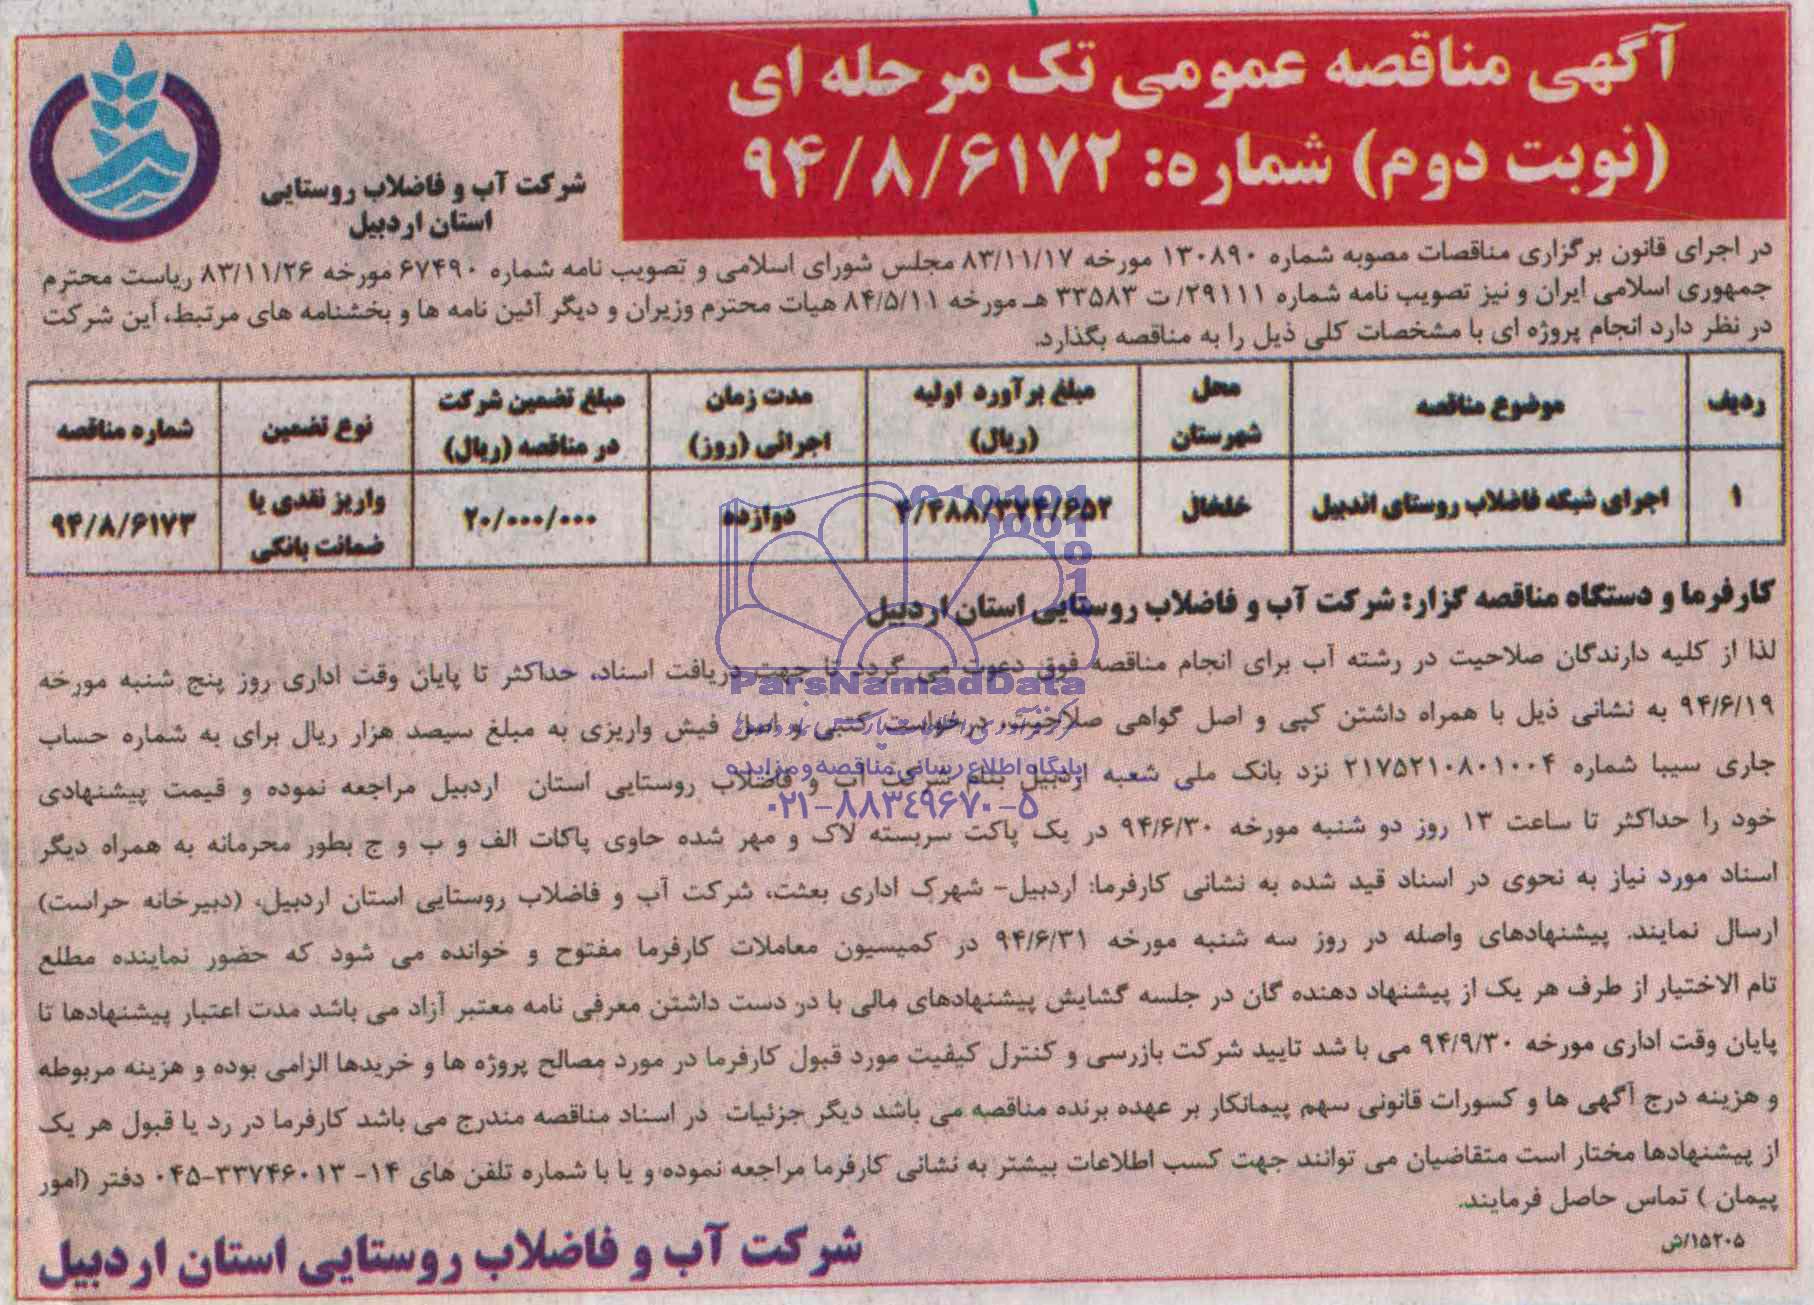 آگهی مناقصه عمومی تک مرحله ای
(نوبت دوم) شماره: ۹۴/۸/۶۱۷۲
شرکت آب و فاضلاب روستایی
استان اردبیل
در اجرای قانون برگزاری مناقصات مصوبه شماره ۱۳۰۸۹۰ مورخه ۸۳/۱۱/۱۷ مجلس شورای اسلامی و تصویب نامه شماره ۶۷۴۹۰ مورخه ۸۳/۱۱/۲۶ ریاست محترم
جمهوری اسلامی ایران و نیز تصویب نامه شماره ۲۹۱۱۱/ ت ۳۳۵۸۳ هـ مورخه ۸۴/۵/۱۱ هیات محترم وزیران و دیگر آئین نامه ها و بخشنامه های مرتبط، این شرکت
در نظر دارد انجام پروژه ای با مشخصات کلی ذیل را به مناقصه بگذارد.
ردیف موضوع مناقصه محل شهرستان مبلغ برآورد اولیه (ریال) مدت زمان اجرائی (روز) مبلغ تضمین شرکت در مناقصه (ریال) نوع تضمین شماره مناقصه
۱ اجرای شبکه فاضلاب روستای اندبیل خلخال دوازده ۲۰/۰۰۰/۰۰۰ واریز نقدی یا ضمانت بانکی ۹۴/۸/۶۱۷۳
کارفرما و دستگاه مناقصه گزار: شرکت آب و فاضلاب روستایی استان اردبیل
لذا از کلیه دارندگان صلاحیت در رشته آب برای انجام مناقصه فوق دعوت می گردد تا جهت دریافت اسناد، حداکثر تا پایان وقت اداری روز پنج شنبه مورخه
۹۴/۶/۱۹ به نشانی ذیل با همراه داشتن کپی و اصل گواهی صلاحیت، درخواست کتبی و اصل فیش واریزی به مبلغ سیصد هزار ریال برای به شماره حساب
جاری سیبا شماره ۲۱۷۵۲۱۰۸۰۱۰۰۴ نزد بانک ملی شعبه اردبیل بنام شرکت آب و فاضلاب روستایی استان اردبیل مراجعه نموده و قیمت پیشنهادی
خود را حداکثر تا ساعت ۱۳ روز دو شنبه مورخه ۹۴/۶/۳۰ در یک پاکت سربسته لاک و مهر شده حاوی پاکات الف و ب و ج بطور محرمانه به همراه دیگر
اسناد مورد نیاز به نحوی در اسناد قید شده به نشانی کارفرما: اردبیل- شهرک اداری بعثت، شرکت آب و فاضلاب روستایی استان اردبیل، (دبیرخانه حراست)
ارسال نمایند. پیشنهادهای واصله در روز سه شنبه مورخه ۹۴/۶/۳۱ در کمیسیون معاملات کارفرما مفتوح و خوانده می شود که حضور نماینده مطلع
تام الاختیار از طرف هر یک از پیشنهاد دهنده گان در جلسه گشایش پیشنهادهای مالی با در دست داشتن معرفی نامه معتبر آزاد می باشد مدت اعتبار پیشنهادها تا
پایان وقت اداری مورخه ۹۴/۹/۳۰ می با شد تایید شرکت بازرسی و کنترل کیفیت مورد قبول کارفرما در مورد مصالح پروژه ها و خریدها الزامی بوده و هزینه مربوطه
و هزینه درج آگهی ها و کسورات قانونی سهم پیمانکار بر عهده برنده مناقصه می باشد دیگر جزئیات در اسناد مناقصه مندرج می باشد کارفرما در رد یا قبول هر یک
از پیشنهادها مختار است متقاضیان می توانند جهت کسب اطلاعات بیشتر به نشانی کارفرما مراجعه نموده و یا با شماره تلفن های ۱۴- ۰۴۵-۳۳۷۴۶۰۱۳ دفتر (امور
پیمان ) تماس حاصل فرمایند.
۱۵۲۰۵/ش
شرکت آب و فاضلاب روستایی استان اردبیل
ParsNamadData
پایگاه اطلاع رسانی مناقصه و مزایده
۰۲۱-۸۸۳۴۹۶۷۰-۵